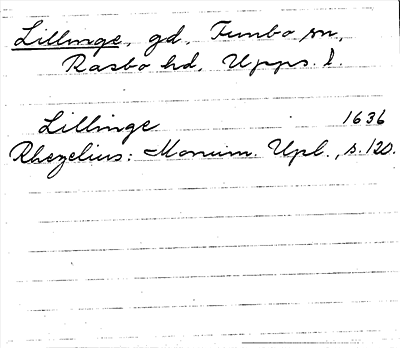 Lillinge, gd, Funbo sn,
Rasbo hd, Upps. l.
Lillinge 1636
Rhezelius: Monum. Upl., s. 120.